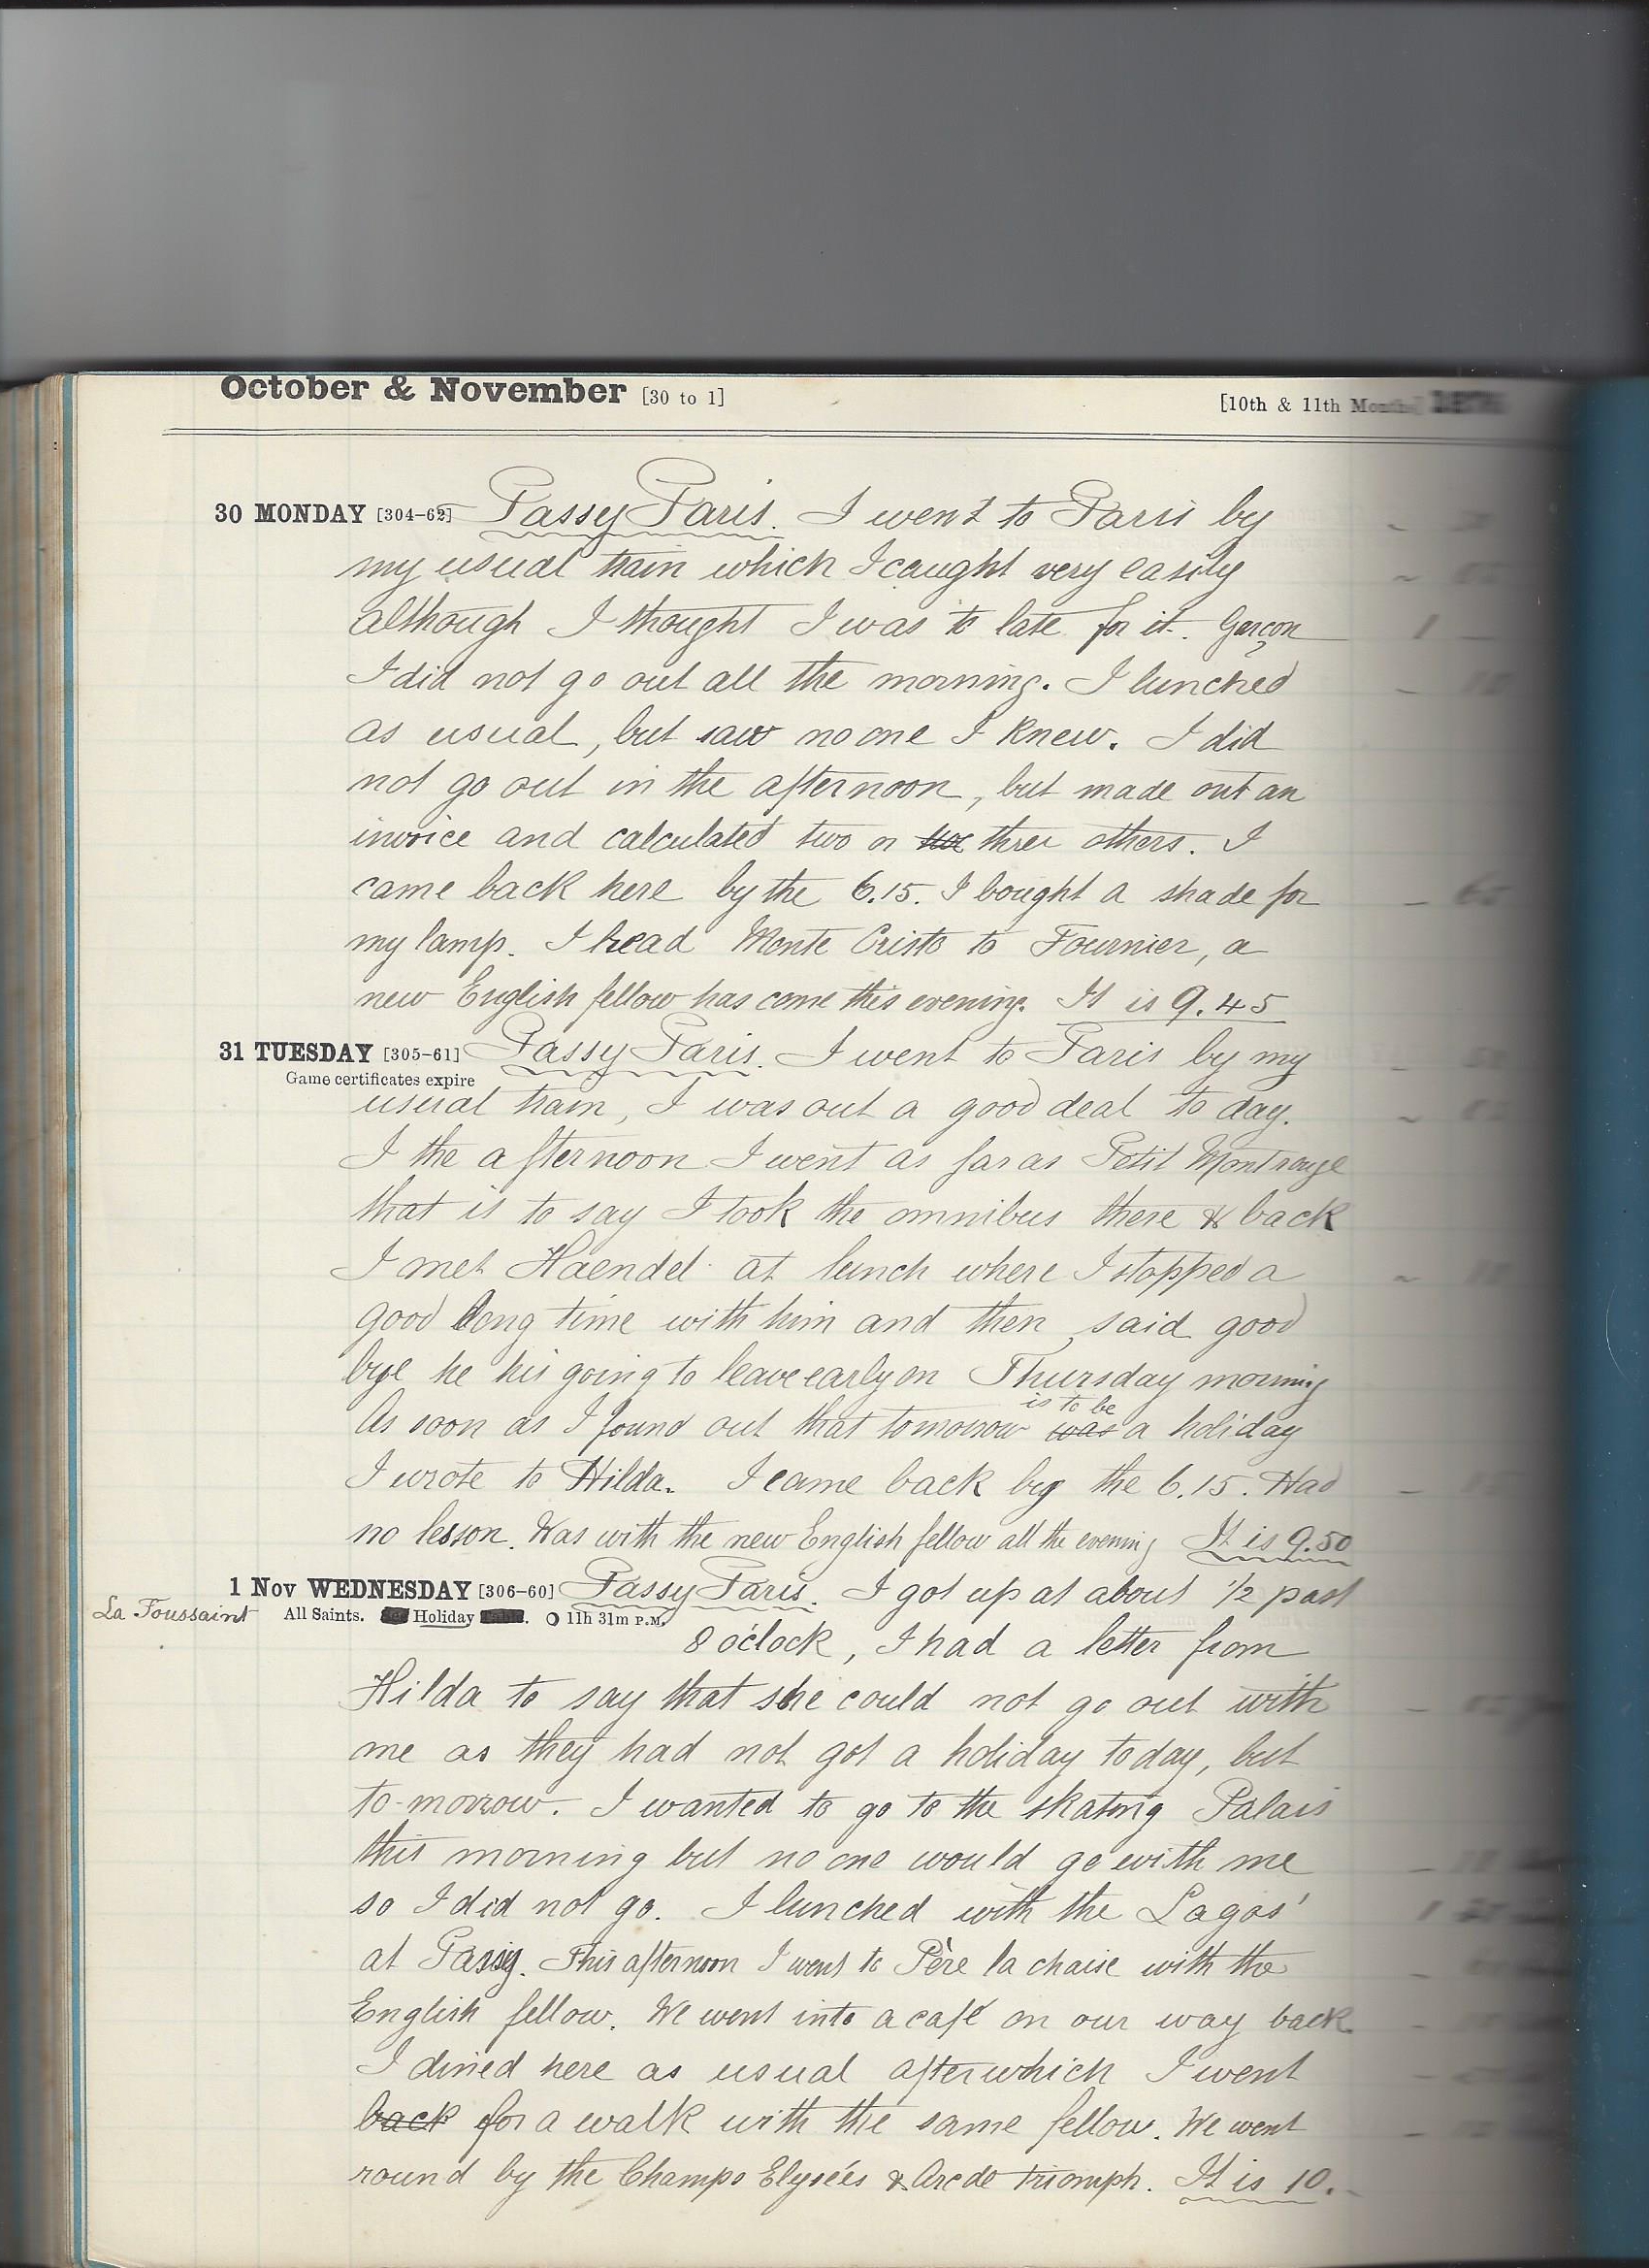 October & November [30 to 1] [10th & 11th Month] 1876
30 MONDAY [304-62] Passy Paris. I went to Paris by
my usual train which I caught very easily
although I thought I was to late for it. Garçon 1 —
I did not go out all the morning. I lunched
as usual, but saw no one I knew. I did
not go out in the afternoon, but made out an
invoice and calculated two or three others. I
came back here by the 6.15. I bought a shade for
my lamp. I read Monte Cristo to Fournier, a
new English fellow has come this evening. It is 9.45
31 TUESDAY [305-61] Passy Paris. I went to Paris by my
Game certificates expire
usual train, I was out a good deal to day.
I the afternoon I went as far as Petit Montrouge
that is to say I took the omnibus there & back
I met Haendel at lunch where I stopped a
good long time with him and then said good
bye he his going to leave early on Thursday morning
is to be
As soon as I found out that tomorrow was a holiday
I wrote to Hilda. I came back by the 6.15. Had
no lesson. Was with the new English fellow all the evening It is 9.50
1 Nov WEDNESDAY [306-60] Passy Paris. I got up at about 1/2 past
La Toussaint All Saints. Holiday 11h 31m P.M.
8 o'clock, I had a letter from
Hilda to say that she could not go out with
me as they had not got a holiday today, but
to-morrow. I wanted to go to the skating Palais
this morning but no one would go with me
so I did not go. I lunched with the Lagos'
at Passy. This afternoon I went to Père la chaise with the
English fellow. We went into a café on our way back.
I dined here as usual after which I went
back for a walk with the same fellow. We went
round by the Champs Elysées & Arc de triomph. It is 10.